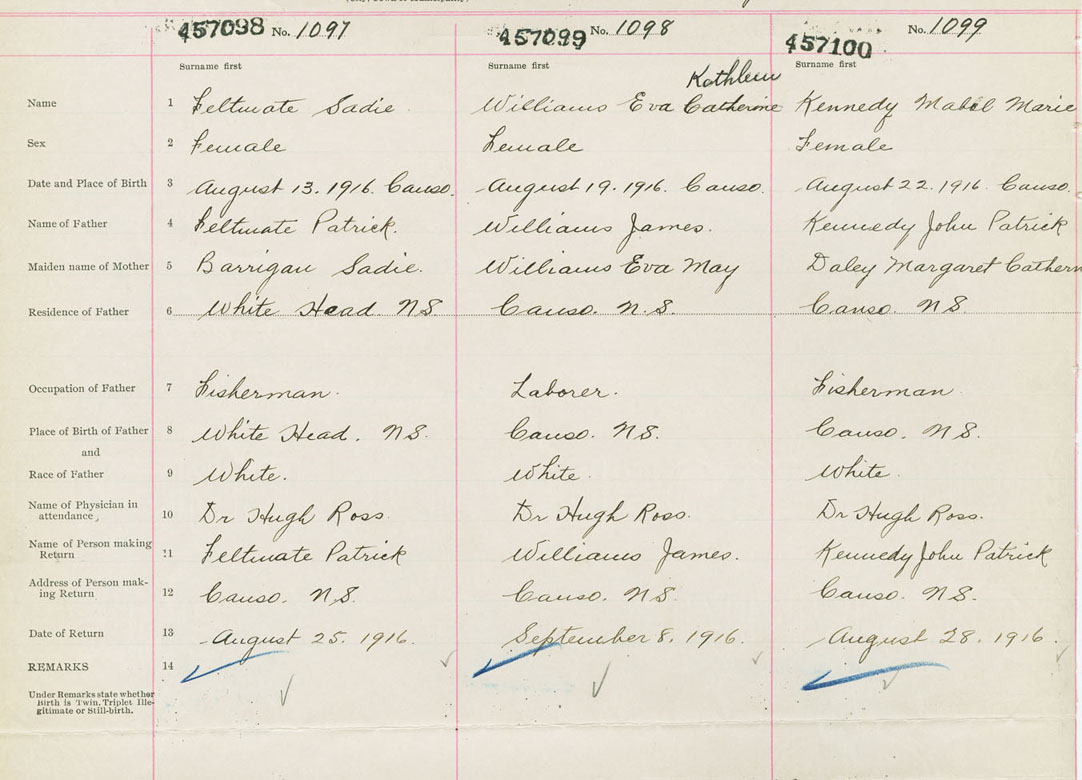 457098 No. 1097 457099 No. 1098 457100 No. 1099
Surname first Surname first Surname first
Kathleen
Name 1 Feltmate Sadie Williams Eva Catherine Kennedy Mabel Marie
Sex 2 Female Female Female
Date and Place of Birth 3 August 13. 1916. Canso. August 19. 1916. Canso. August 22. 1916. Canso.
Name of Father 4 Feltmate Patrick. Williams James. Kennedy John Patrick
Maiden name of Mother 5 Barrigan Sadie. Williams Eva May Daley Margaret Cathern
Residence of Father 6 White Head. N.S. Canso. N.S. Canso. N.S.
Occupation of Father 7 Fisherman. Laborer. Fisherman
Place of Birth of Father 8 White Head. N.S. Canso. N.S. Canso. N.S.
and
Race of Father 9 White. White. White.
Name of Physician in
attendance, 10 Dr Hugh Ross. Dr Hugh Ross. Dr Hugh Ross.
Name of Person making
Return 11 Feltmate Patrick Williams James. Kennedy John Patrick
Address of Person mak-
ing Return 12 Canso. N.S. Canso. N.S. Canso. N.S.
Date of Return 13 August 25. 1916. September 8. 1916. August 28. 1916.
REMARKS 14
Under Remarks state whether
Birth is Twin, Triplet Ille-
gitimate or Still-birth.